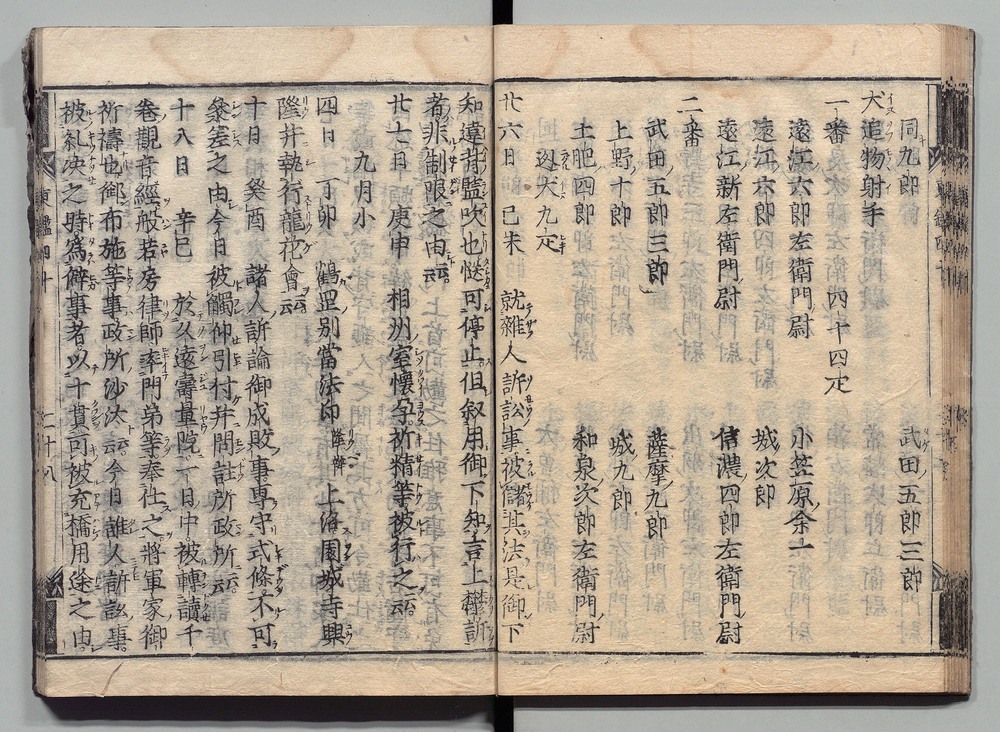 同九郎 武田五郎三郎
犬追物射手
一番 四十四疋
遠江六郎左衛門尉 小笠原余一
遠江六郎 城次郎
遠江新左衛門尉 信濃四郎左衛門尉
二番
武田五郎三郎 薩摩九郎
上野十郎 城九郎
土肥四郎 和泉次郎左衛門尉
迯犬九疋
廿六日 己未 就雜人訴訟事被儲其法是御下
知違背監吹也愜可停止但叙用御下知旨上欝訴
者非制限之由云云
廿七日 庚申 相州室懷孕祈精等被行之云云
九月小
四日 丁卯 鶴岡別當法印隆辨上洛園城寺興
隆并執行龍花會云云
十日 癸酉 諸人訴論御成敗事專守式條不可
參差之由今日被觸仰引付并問註所政所云云
十八日 辛巳 於久遠壽量院一日中被轉讀千
卷觀音經般若房律師率門弟等奉仕之將軍家御
祈禱也御布施等事政所沙汰云云今日雜人訴訟事
被糺决之時爲僻事者以十貫可被充橋用途之由
東鑑四十 二十八